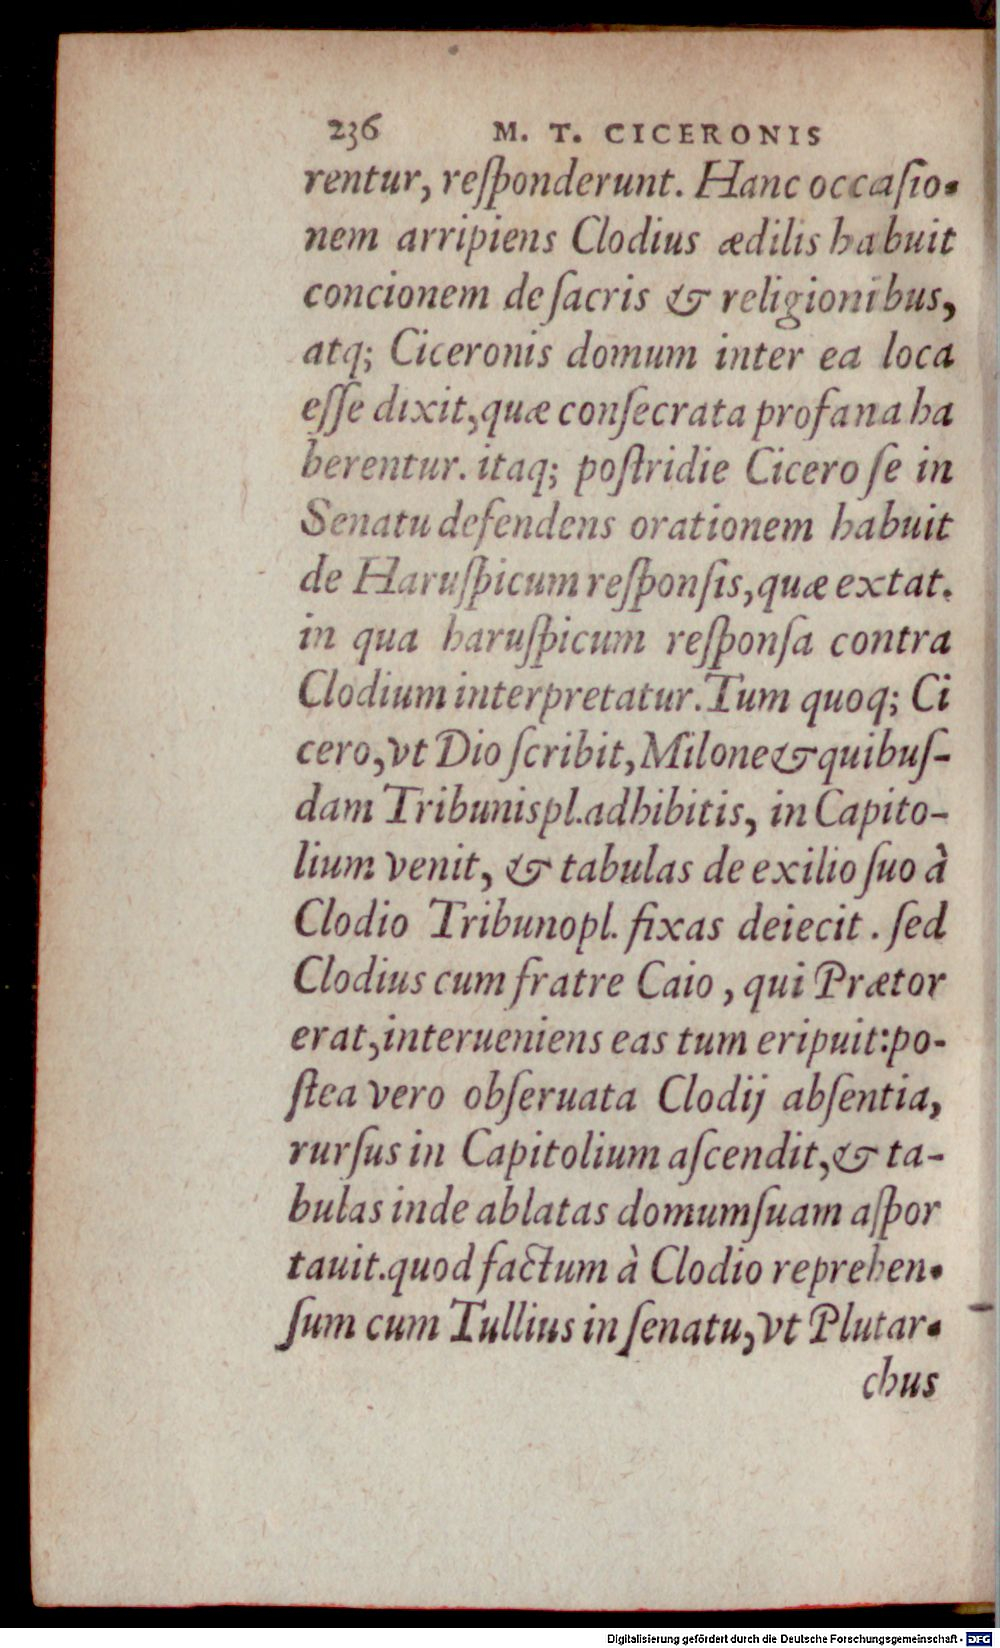 236 M. T. CICERONIS
rentur, reſponderunt. Hanc occaſio-
nem arripiens Clodius ædilis habuit
concionem de ſacris & religionibus,
atq; Ciceronis domum inter ea loca
eſſe dixit, quæ conſecrata profana ha
berentur. itaq; poſtridie Cicero ſe in
Senatu defendens orationem habuit
de Haruſpicum reſponſis, quæ extat.
in qua haruſpicum reſponſa contra
Clodium interpretatur. Tum quoq; Ci
cero, vt Dio ſcribit, Milone & quibuſ-
dam Tribunis pl. adhibitis, in Capito-
lium venit, & tabulas de exilio ſuo à
Clodio Tribuno pl. fixas deiecit. ſed
Clodius cum fratre Caio, qui Prætor
erat, interueniens eas tum eripuit: po-
ſtea vero obſeruata Clodij abſentia,
rurſus in Capitolium aſcendit, & ta-
bulas inde ablatas domum ſuam aſpor
tauit. quod factum à Clodio reprehen-
ſum cum Tullius in ſenatu, vt Plutar-
chus
Digitalisierung gefördert durch die Deutsche Forschungsgemeinschaft - DFG